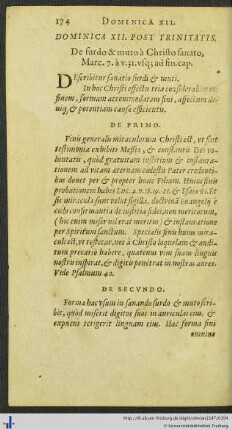 174 DOMENICA XII.
DOMINICA XII. POST TRINITATIS.
De surdo & muto à Christo sanato,
Marc. 7. à v. 31. vsq; ad fin. cap.
DEscribitur sanatio surdi & muti.
In hoc Christi effectu tria consideranimus:
finem, formam accommodatam fini, affectum de-
niq; & potentiam causæ efficientis.
DE PRIMO.
Finis generalis miraculorum Christi est, vt sint
testimonia exhibiti Messiæ, & constantis Dei vo-
luntatis, quòd gratuitam iustitiam & instaura-
tionem ad vitam æternam eodem modo credenti-
bus donet per & propter hunc Filium. Huius finis
probationem habes Luc. 4. v. 18. 19. 21. & Esaiæ 61. Et
sic miracula sunt velut sigilla, doctrinæ Euangelij è
cuius confirmantia de iustitia fidei, non meritorum,
(hoc enim nosser miserat meritum) & instauratione
per Spiritum sanctum. Specialis finis huius mira-
culi est, vt testetur, nos à Christo loquelam & audi-
tum precario habere, quatenus vim suam linguis
nostris inspirat, & digitis penetrat in nostras aures.
Vide Psalmum 40.
DE SECVNDO.
Forma hac vsum in sanando surdo & muto scri-
bit, quòd miserit digitos suos in auriculas eius, &
expuens tetigerit linguam eius. Hac forma fini
omnino